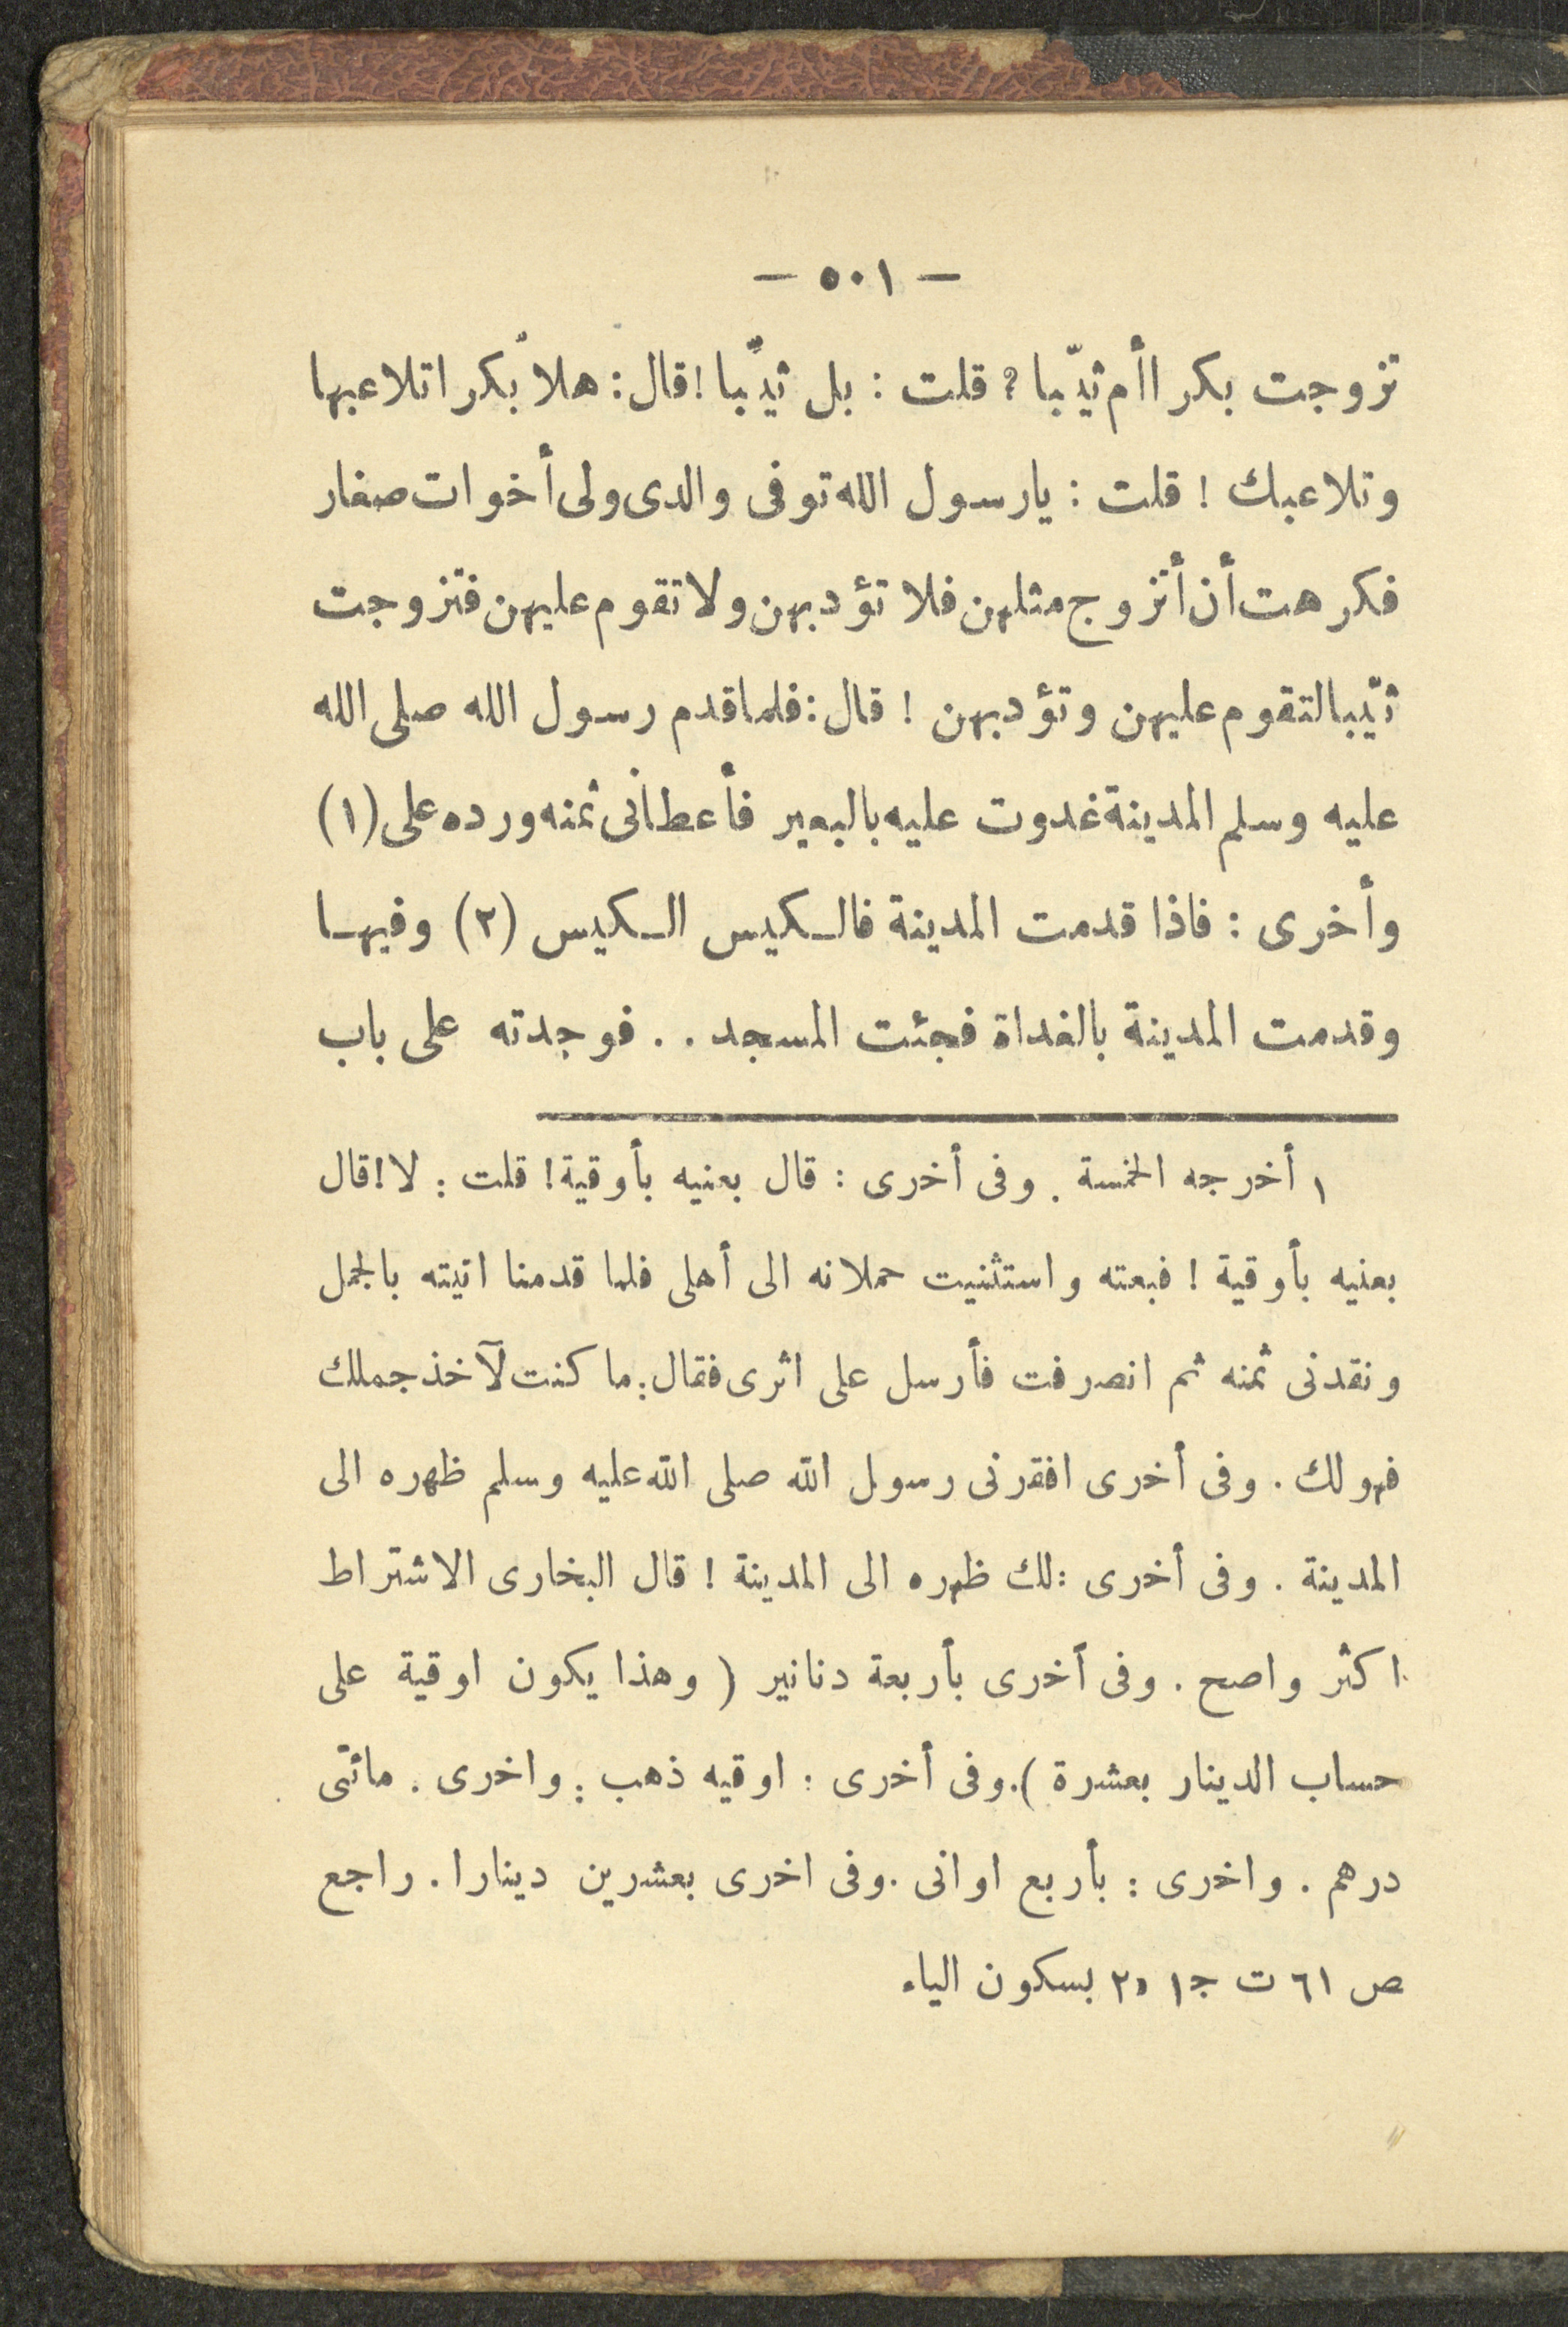 — ٥٠١ —
تزوجت بكرا أم ثيّبا ؟ قلت : بل ثيّبا ! قال : هلاّ بكرا تلاعبها
وتلاعبك ! قلت : يا رسول الله توفى والدى ولى أخوات صغار
فكرهت أن أتزوج مثلهن فلا تؤدبهن ولا تقوم عليهن فتزوجت
ثيّبا لتقوم عليهن وتؤدبهن ! قال : فلما قدم رسول الله صلى الله
عليه وسلم المدينة غدوت عليه بالبعير فأعطانى ثمنه ورده على (١)
وأخرى : فاذا قدمت المدينة فالـكيس الـكيس (٢) وفيهـا
وقدمت المدينة بالغداة فجئت المسجد . . فوجدته على باب
١ أخرجه الخمسة . وفى أخرى : قال بعنيه بأوقية ! قلت : لا ! قال
بعنيه بأوقية ! فبعته واستثنيت حملانه الى أهلى فلما قدمنا اتيته بالجمل
ونقدنى ثمنه ثم انصرفت فأرسل على اثرى فقال : ما كنت لآخذ جملك
فهو لك . وفى أخرى افقرنى رسول الله صلى الله عليه وسلم ظهره الى
المدينة . وفى أخرى : لك ظهره الى المدينة ! قال البخارى الاشتراط
اكثر واصح . وفى أخرى بأربعة دنانير ( وهذا يكون اوقية على
حساب الدينار بعشرة ) . وفى أخرى : اوقيه ذهب : واخرى . مائتى
درهم . واخرى : بأربع اوانى . وفى اخرى بعشرين دينارا . راجع
ص ٦١ ت ج ١ و ٢ بسكون الياء